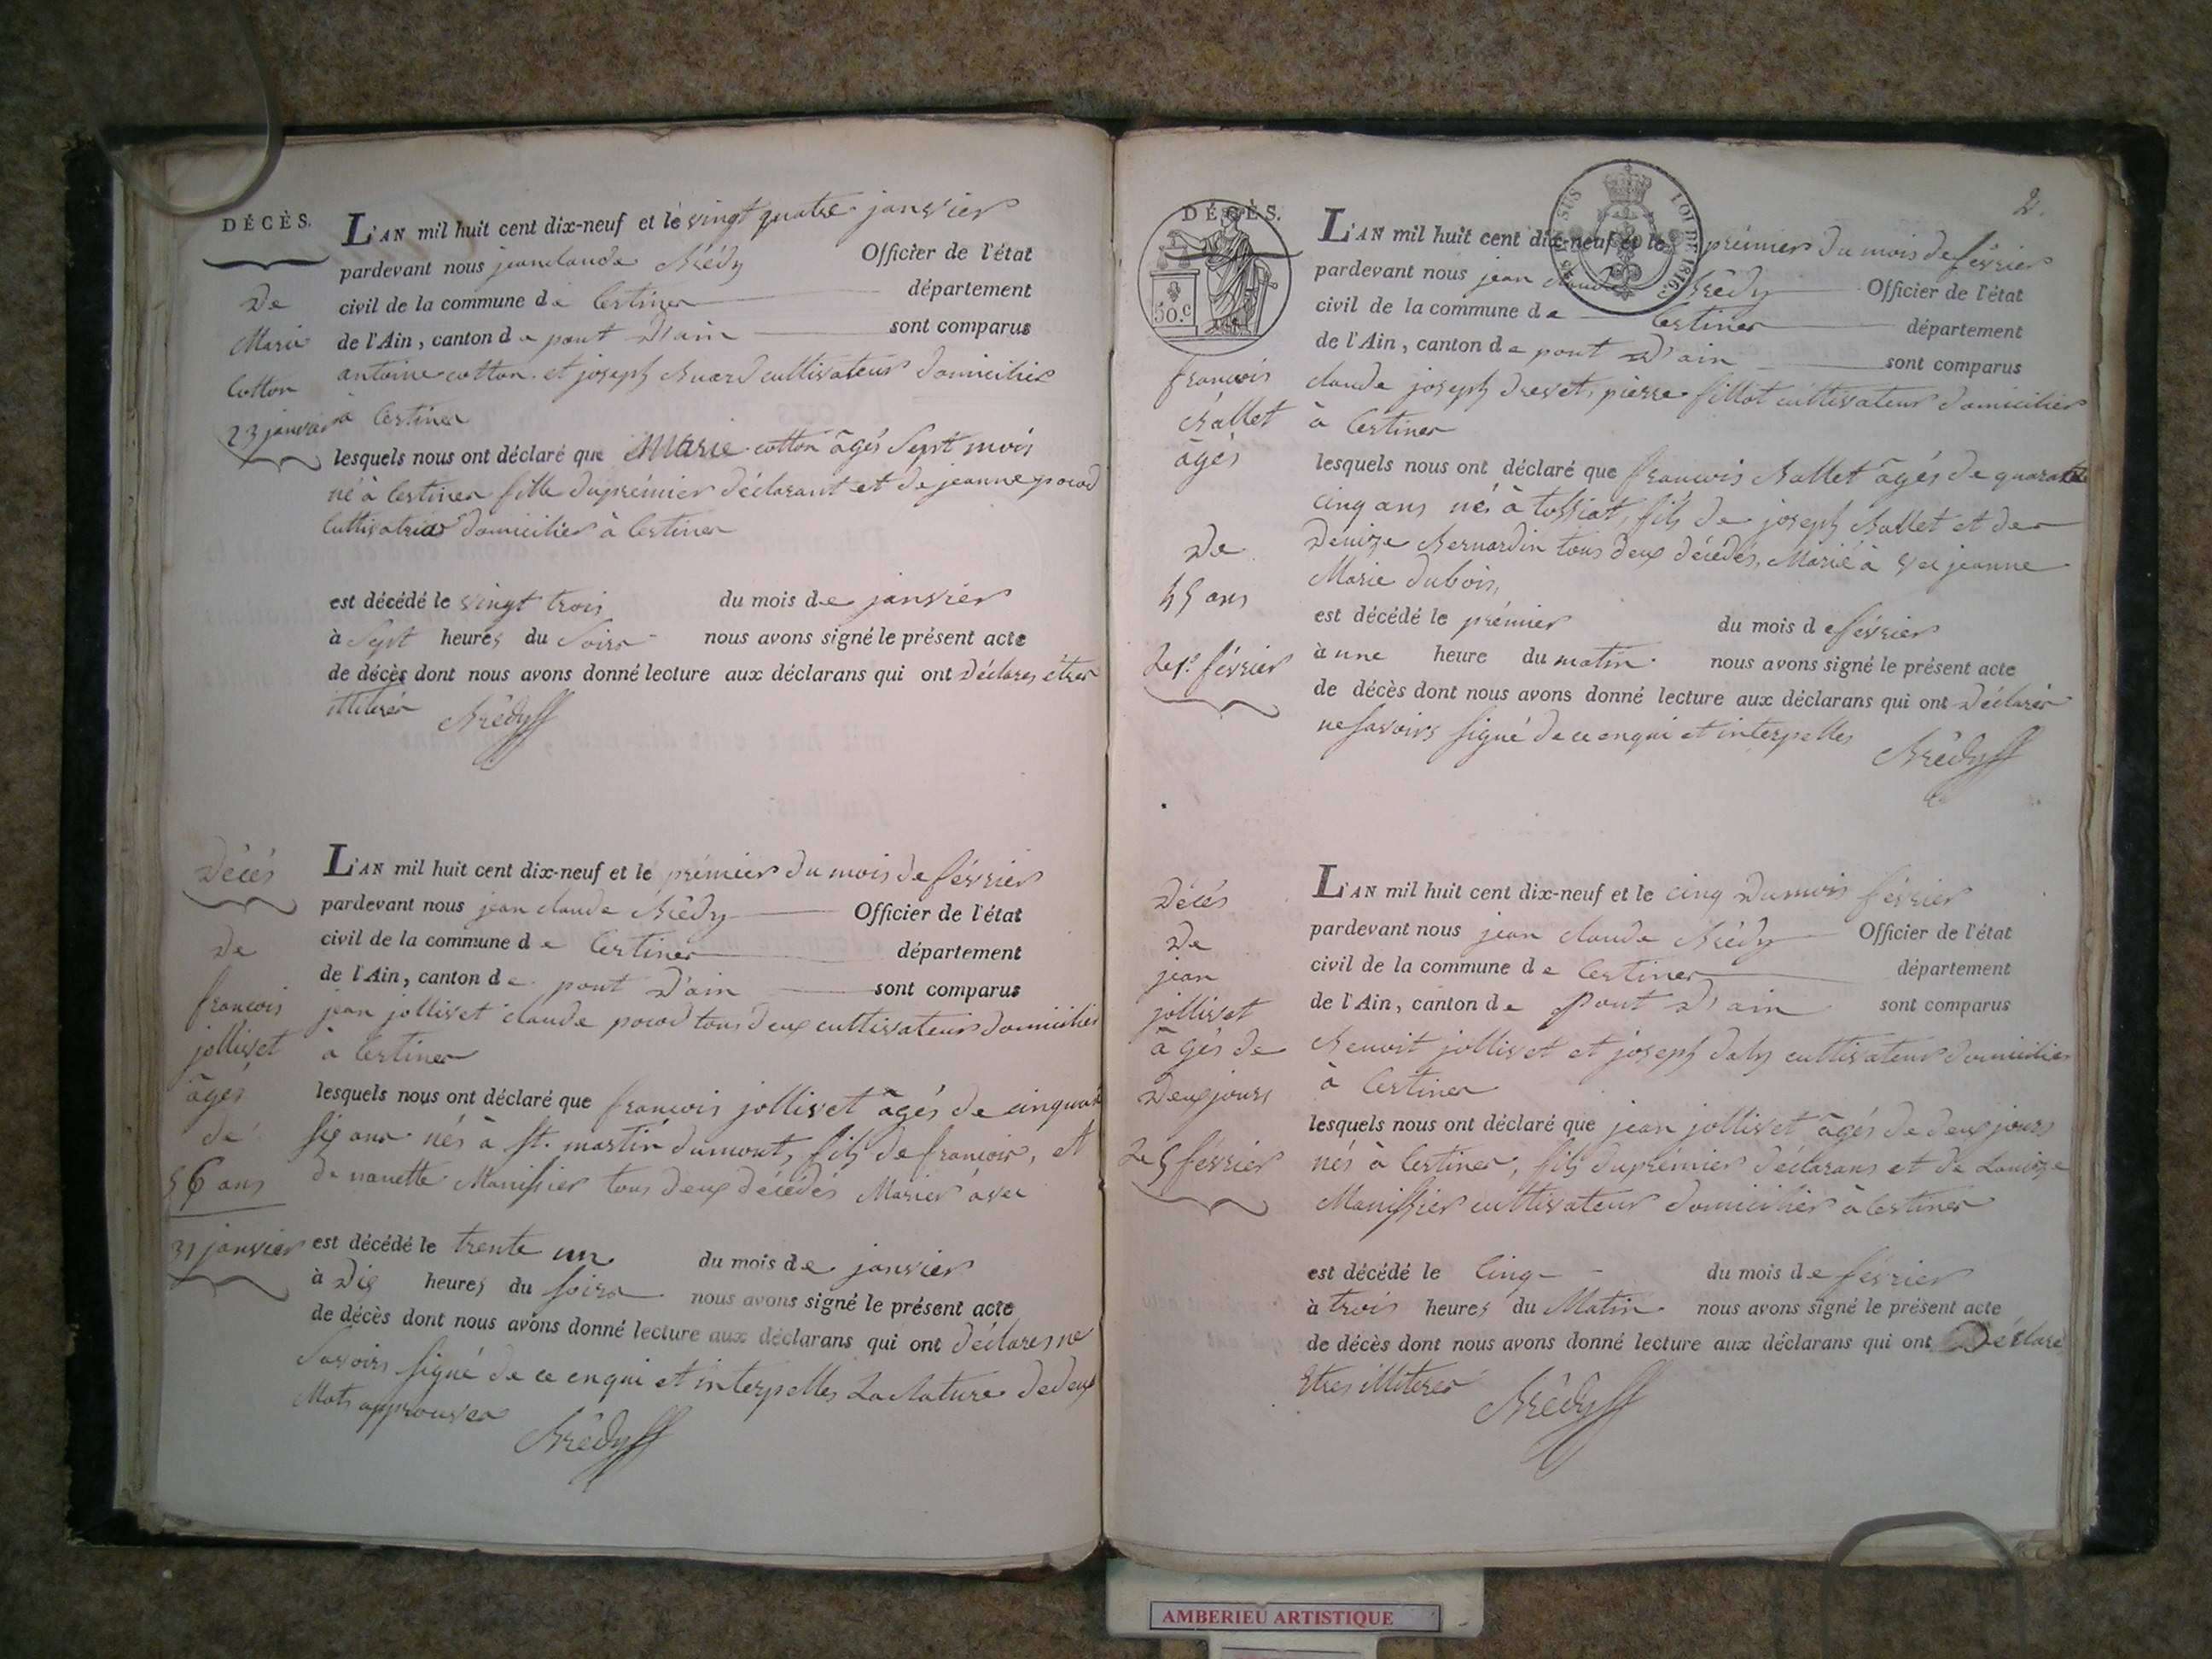 DÉCÈS.
De
Marie
Cotton
23 janvier
L'AN mil huit cent dix-neuf et le vingt quatre janvier
pardevant nous jean claude Brédy Officier de l'état
civil de la commune de Certines département
de l'Ain, canton de pont D'ain sont comparus
antoine cotton et joseph Buard cultivateur domicilier
à Certines
lesquels nous ont déclaré que Marie cotton âgés Sept mois
né à Certines fille du prémier déclarant et de jeanne pocod
Cultivatrice domicilier à Certines
est décédé le vingt trois du mois de janvier
à Sept heures du Soire nous avons signé le présent acte
de décès dont nous avons donné lecture aux déclarans qui ont déclarés être
illiterés Brêdy
Décés
De
francois
jollivet
âgés
de
56 ans
31 janvier
L'AN mil huit cent dix-neuf et le prémier du mois de février
pardevant nous jean claude Brédy Officier de l'état
civil de la commune de Certines département
de l'Ain, canton de pont D'ain sont comparus
jean jollivet claude pocod tous deux cultivateur domicilier
à Certines
lesquels nous ont déclaré que francois jollivet âgés de cinquante
six ans nés à St. martin dumont, fils de francois, et
de nanette Manissier tous deux décédés Marier avec
est décédé le trente un du mois de janvier
à Dix heures du soire nous avons signé le présent acte
de décès dont nous avons donné lecture aux déclarans qui ont déclares ne
Savoire signé de ce enqui et interpelles La Rature de deux
Mots approuves Brêdy
2.
DÉCÈS.
50.c
LOI DE 1816
francois
Ballet
âgés
De
45 ans
Le 1er février
L'AN mil huit cent dix-neuf et le prémier du mois de février
pardevant nous jean claude Brédy Officier de l'état
civil de la commune de Certines département
de l'Ain, canton de pont D'ain sont comparus
claude joseph drevet, pierre fillot cultivateur domicilier
à Certines
lesquels nous ont déclaré que francois Ballet âgés de quarante
cinq ans nés à tossiat, fils de joseph Ballet et de
Denize Bernardin tous deux décédés, Marié à vec jeanne
Marie dubois,
est décédé le prémier du mois de février
à une heure du matin nous avons signé le présent acte
de décès dont nous avons donné lecture aux déclarans qui ont Déclarér
ne savoire signé de ce enqui et interpelles
Brêdy
Décés
De
jean
jollivet
âgés de
Deux jours
Le 5 février
L'AN mil huit cent dix-neuf et le cinq Du mois février
pardevant nous jean claude Brédy Officier de l'état
civil de la commune de Certines département
de l'Ain, canton de pont D'ain sont comparus
Benoit jollivet et joseph daly cultivateur domicilier
à Certines
lesquels nous ont déclaré que jean jollivet âgés de deux jours
nés à Certines, fils du prémier déclarans et de Louize
Manissier cultivateur domicilier à Certines
est décédé le Cinq du mois de février
à trois heures du Matin nous avons signé le présent acte
de décès dont nous avons donné lecture aux déclarans qui ont Déclaré
Etres illiteres Brêdy
AMBERIEU ARTISTIQUE